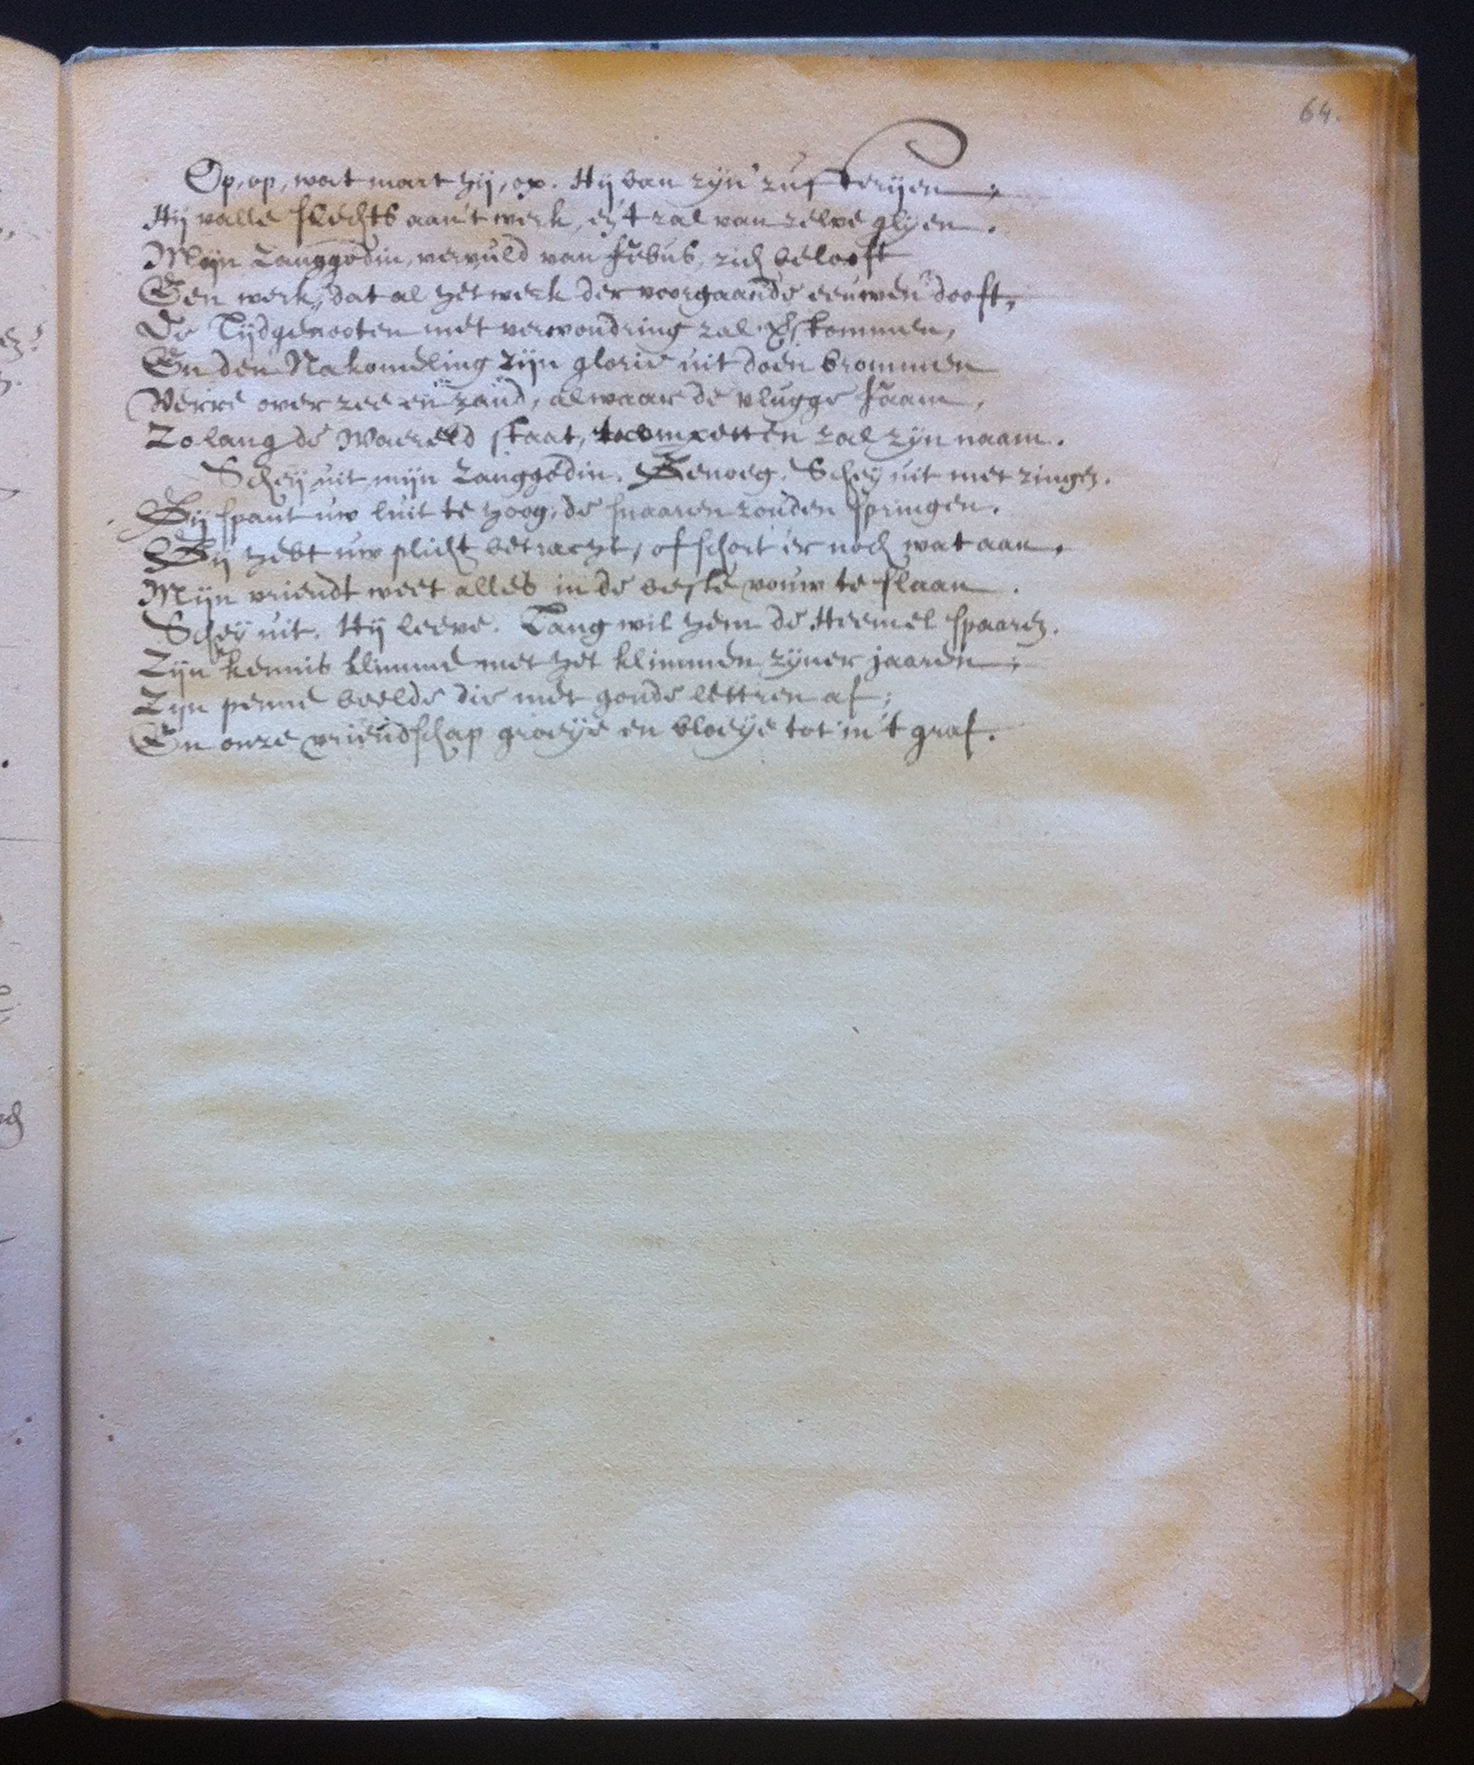 64.
Op, op, wat mart hij, op. Hij van zijn'
Hij valle slechts aan't werk, en't zal van zelve glijen.
Mijn Zanggodin, vervuld van Febus, zich belooft
Een werk, dat al het werk der voorgaande eeuwen dooft,
De Tijdgenooten met verwondring zal
En den Nakomeling zijn glorie uit doen brommen
Verre over zee en zand, alwaar de vlugge Faam,
Zo lang de Waereld staat, trompetten zal zijn naam.
Schey uit mijn Zanggodin. Genoeg. Schey uit met zingen.
Gij spant uw luit te hoog; de snaaren zouden springen.
Gij hebt uw plicht betracht, of schort'er noch wat aan,
Mijn vriendt weet alles in de beste vouw te slaan.
Schey uit. Hij leeve. Lang wil hem de Heemel spaaren.
Zijn kennis klimme met het klimmen zijner jaaren;
Zijn penne beelde die met goude lettren af;
En onze vriendschap groeije en bloeije tot in't graf.